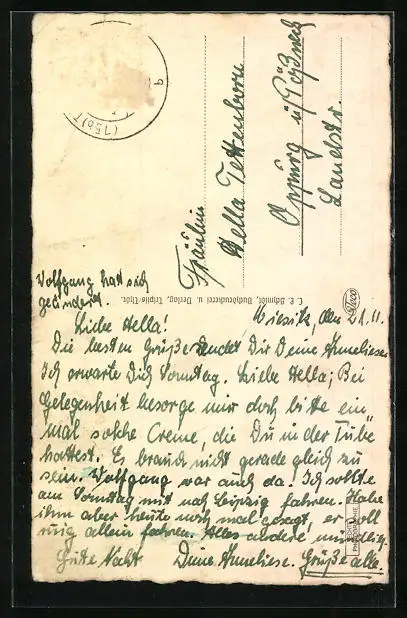 Wolfgang hatt sich
geändert.
Liebe Hella!
den 21.11.
Die besten Grüße sendet Dir Deine Anneliese.
Ich erwarte Dich Sonntag. Liebe Hella, Bei
Gelegenheit besorge mir doch bitte ein-
mal solche Creme, die Du in der Tube
hattest. Es brauch nicht gerade gleich zu
sein. Wolfgang war auch da. Ich sollte
am Sonntag mit nach Leipzig fahren. Habe
ihm aber heute noch mal gesagt, er soll
ruhig allein fahren. Alles andere mündlich.
Gute Nacht Deine Anneliese. Grüße alle.
Fräulein
Hella Tettenborn
Oppurg ü/Pößneck
Landstr.
C. E. Schmidt, Buchdruckerei u. Verlag, Triptis-Thür.
(15b)